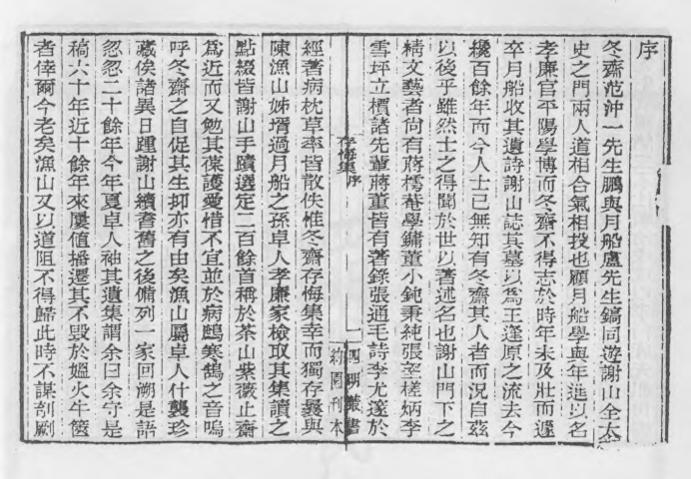 序
冬齋范沖一先生鵬與月船盧先生鎬同遊謝山全太
史之門兩人道相合氣相投也顧月船學與年進以名
孝廉官平陽學博而冬齋不得志於時年未及壯而遽
卒月船收其遺詩謝山誌其墓以爲王逢原之流去今
纔百餘年而今人士已無知有冬齋其人者而況自茲
以後乎雖然士之得聞於世以著述名也謝山門下之
精文藝者尙有蔣樗菴學鏞董小鈍秉純張莘槎炳李
雪坪立槓諸先輩蔣董皆有著錄張通毛詩李尤邃於
存悔集序
一
四明叢書
約園刊本
經著病枕草率皆散佚惟冬齋存悔集幸而獨存曩與
陳漁山姊壻過月船之孫卓人孝廉家檢取其集讀之
點綴皆謝山手蹟選定二百餘首稱於茶山紫薇止齋
爲近而又勉其葆護愛惜不宜並於病鴟寒鶴之音嗚
呼冬齋之自促其生抑亦有由矣漁山屬卓人什襲珍
藏俟諸異日踵謝山續耆舊之後備列一家回溯是語
忽忽二十餘年今年夏卓人袖其遺集謂余曰余守是
稿六十年近十餘年來屢値播遷其不毀於熅火牛篋
者倖爾今老矣漁山又以道阻不得歸此時不謀剞劂